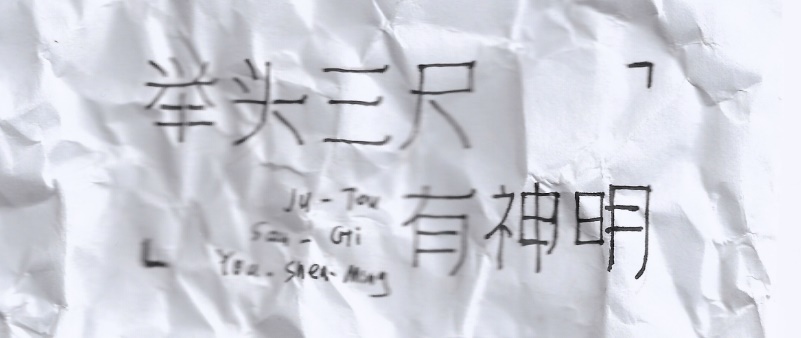 举头三尺
有神明
Ju - Tou
San - Gti
You - Shen - Ming